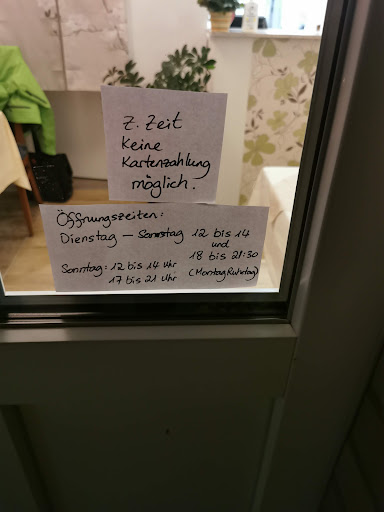 Z. Zeit
keine
Kartenzahlung
möglich.
Öffnungszeiten:
Dienstag – Samstag 12 bis 14
und
18 bis 21:30
Sonntag: 12 bis 14 Uhr (Montag Ruhetag)
17 bis 21 Uhr